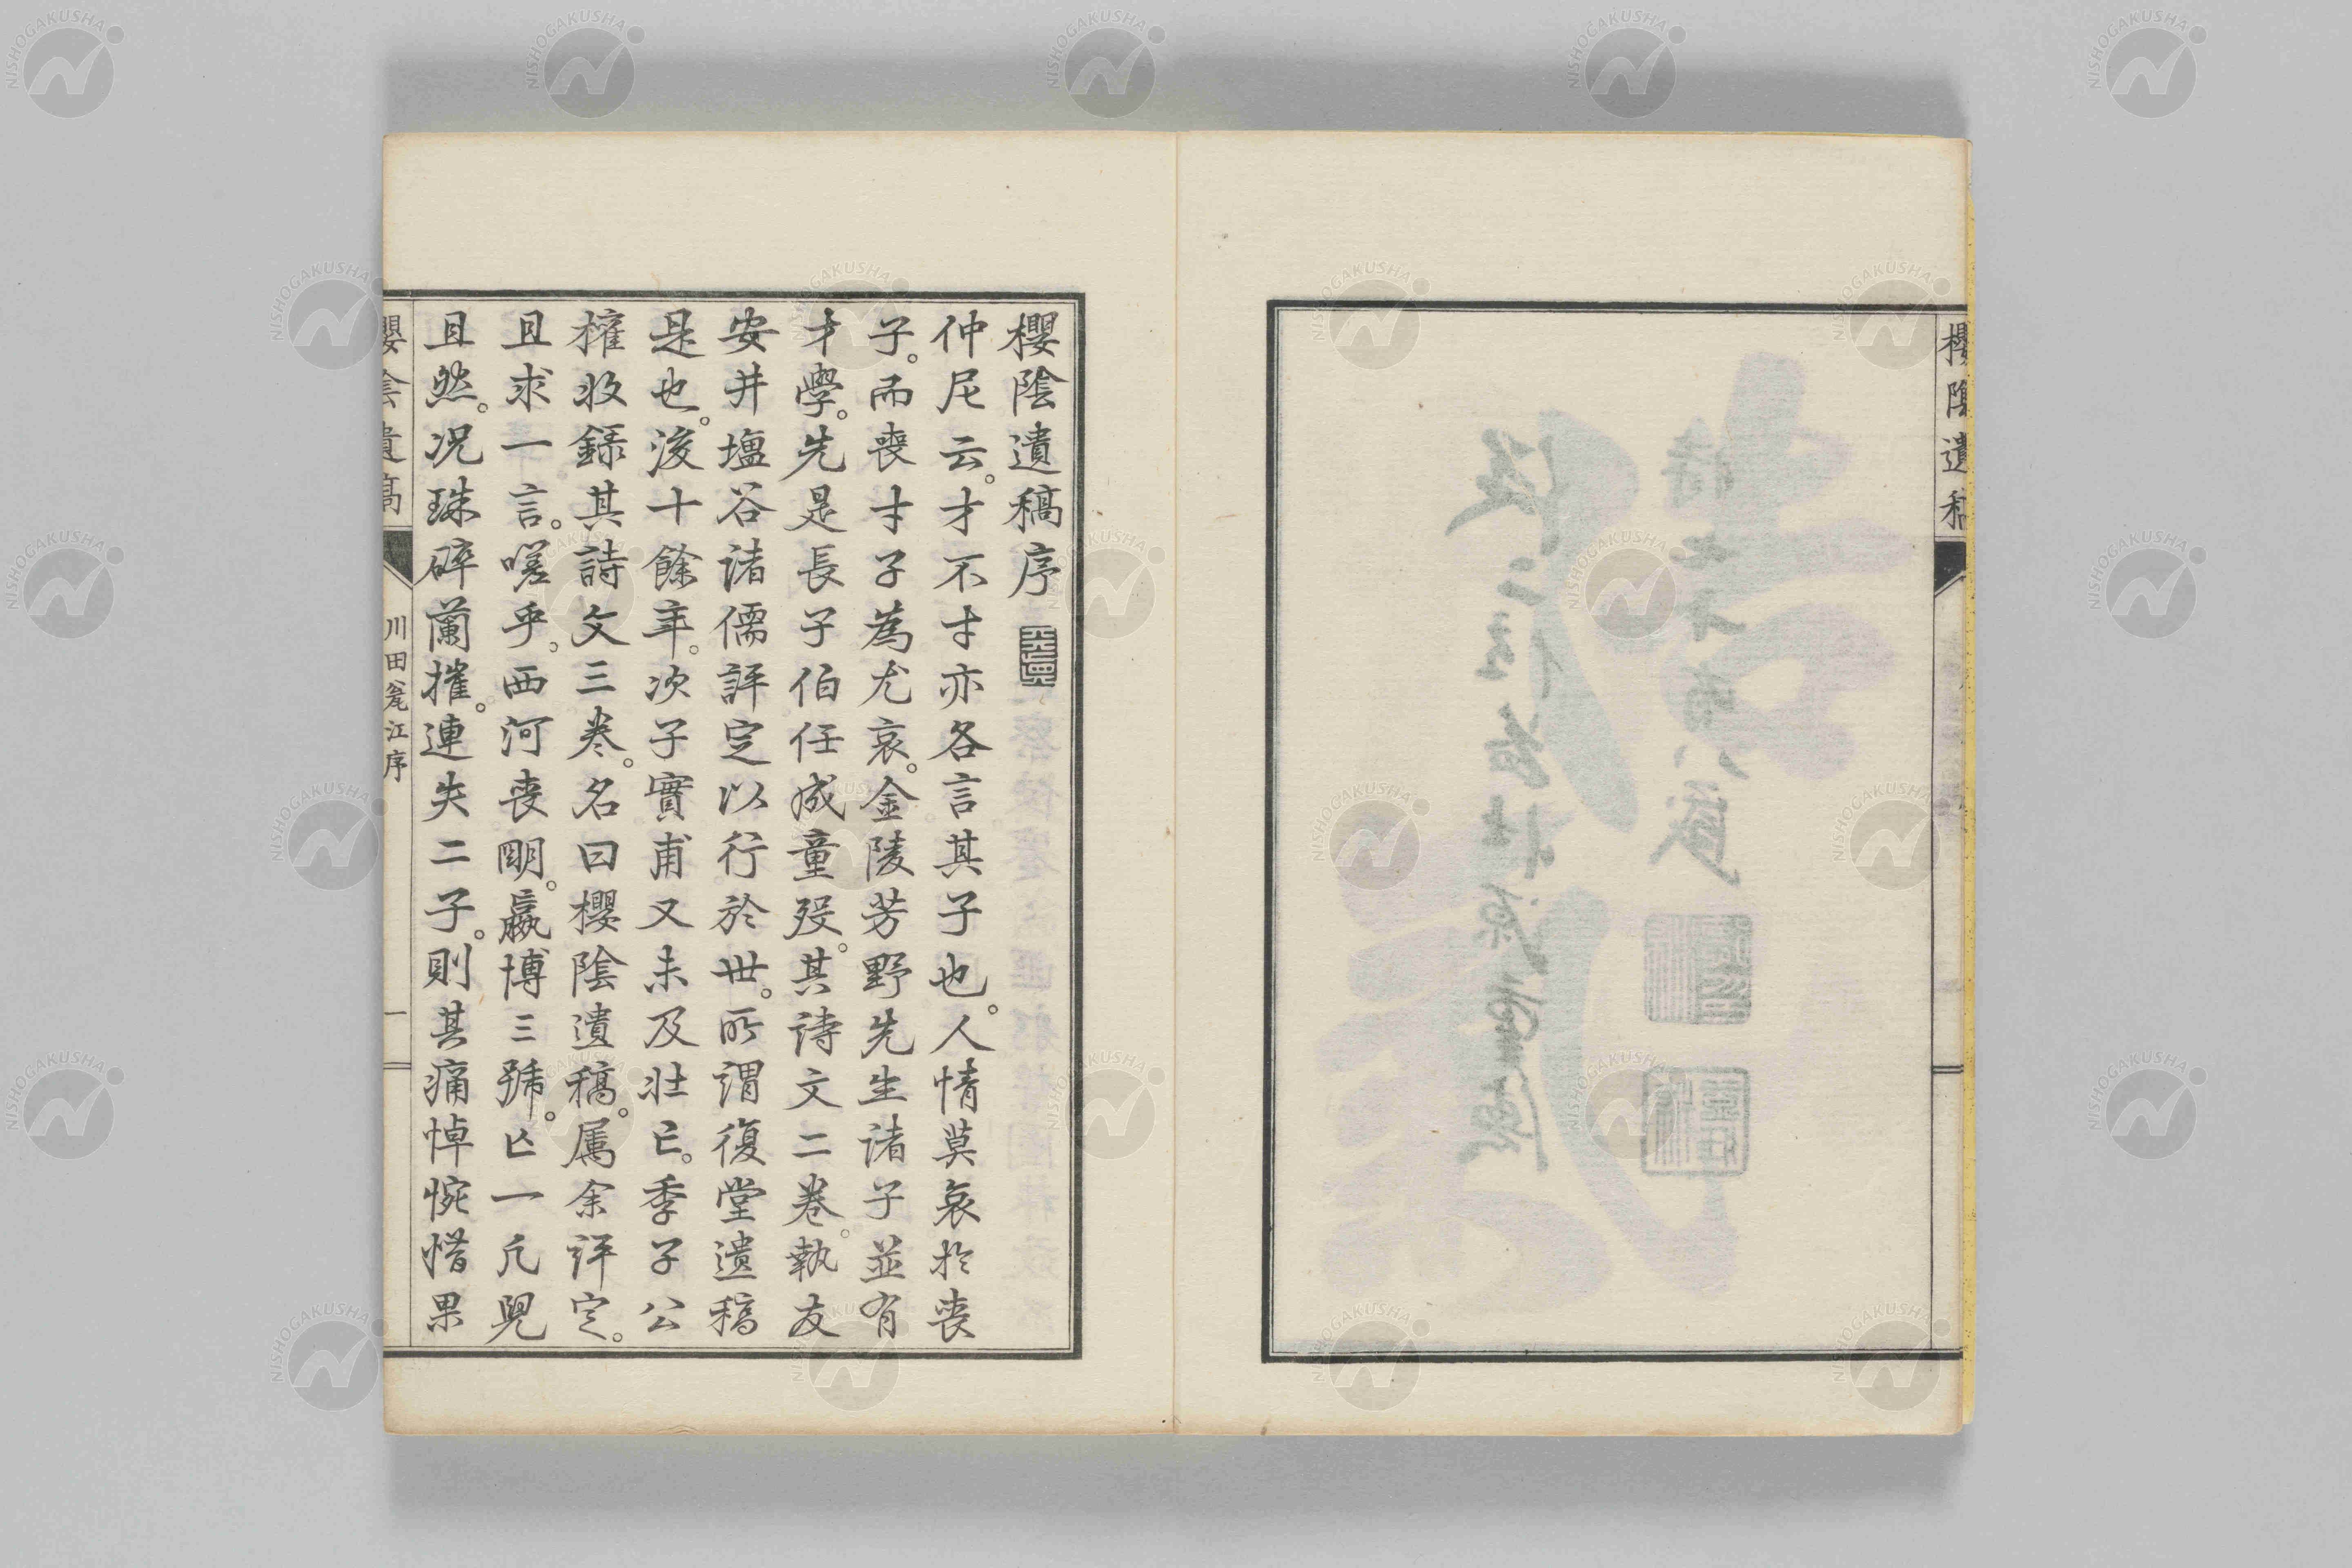 櫻陰遺稿
櫻陰遺稿序
仲尼云。才不才亦各言其子也。人情莫哀於喪
子。而喪才子為尤哀。金陵芳野先生諸子並有
才學。先是長子伯任成童歿。其詩文二卷。執友
安井塩谷諸儒評定以行於世。所謂復堂遺稿
是也。後十餘年。次子實甫又未及壯亡。季子公
櫂收錄其詩文三卷。名曰櫻陰遺稿。属余評定。
且求一言。嗟乎。西河喪明。嬴博三號。亡一凡兒
且然。况珠碎蘭摧。連失二子。則其痛悼惋惜果
櫻陰遺稿
川田瓮江序
一
NISHOGAKUSHA